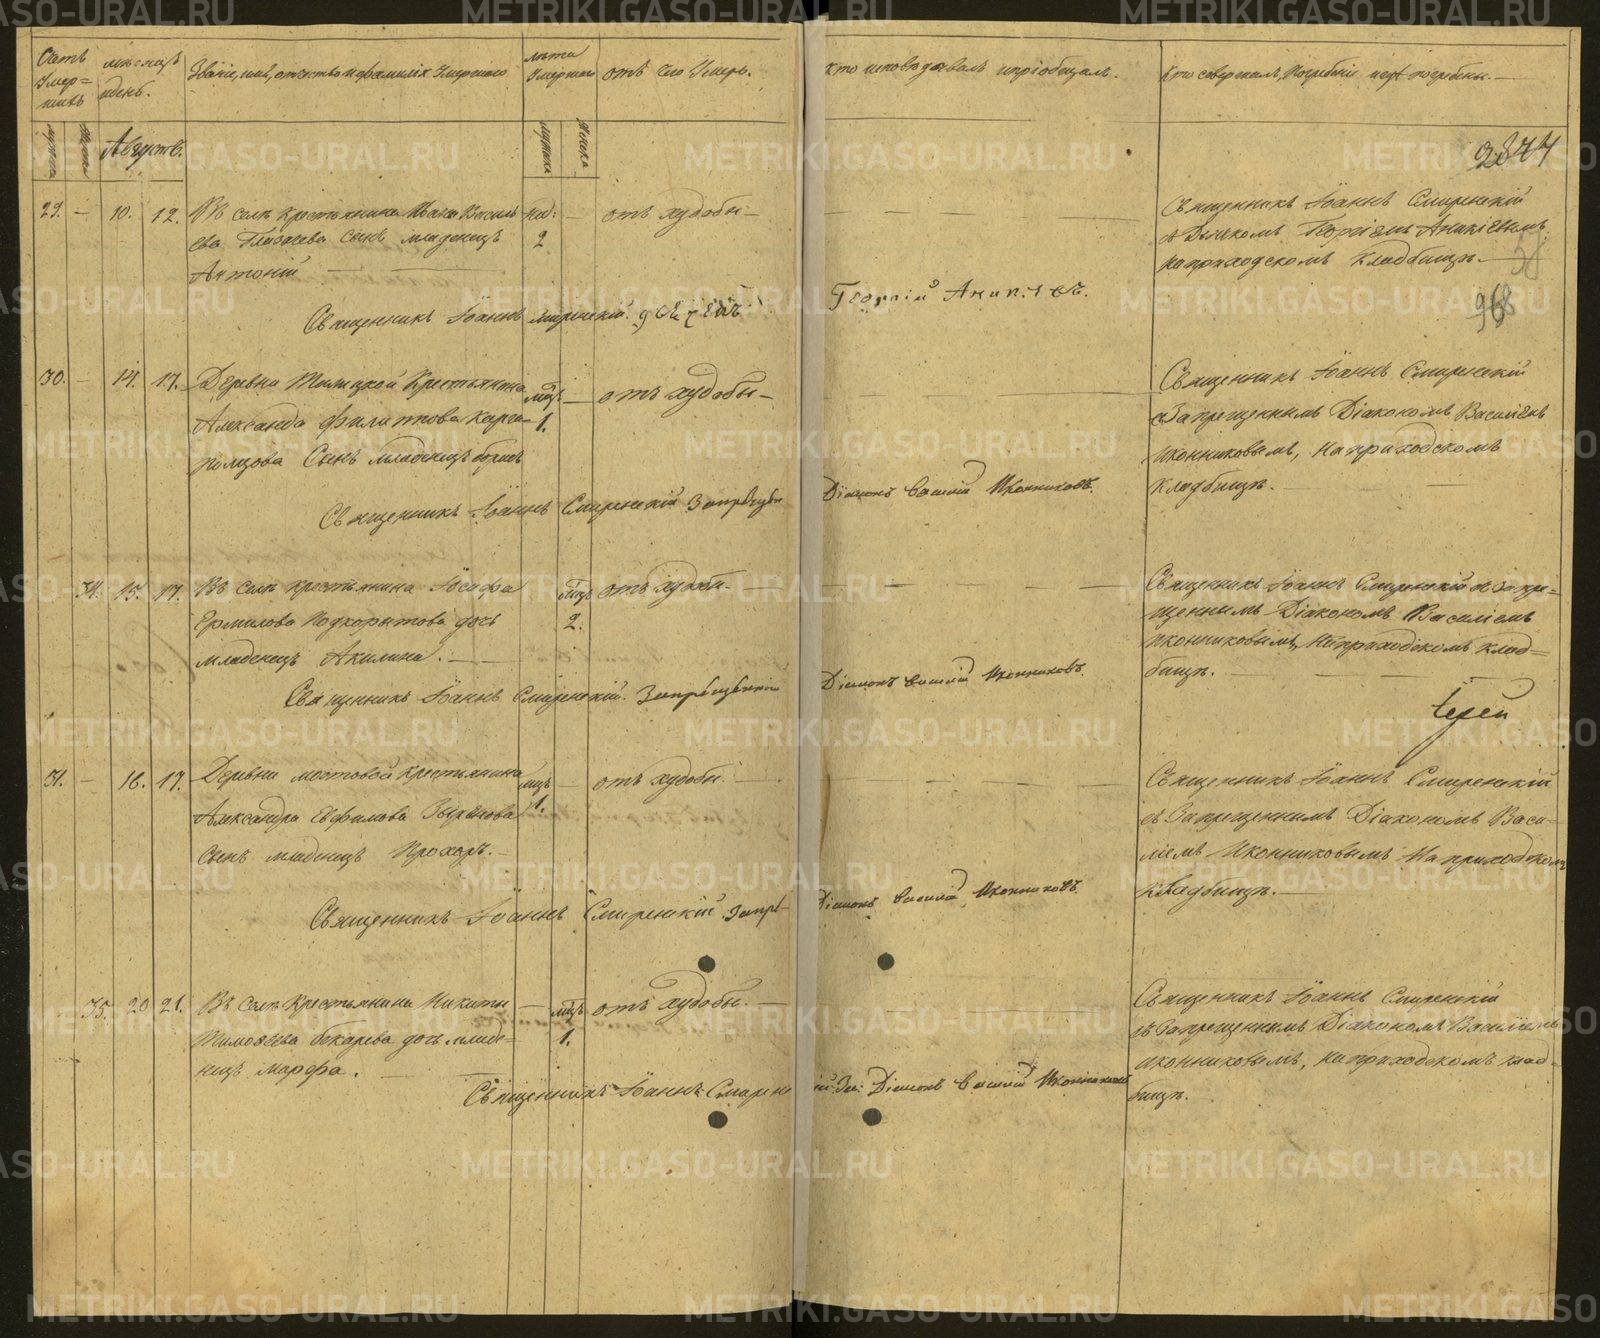 Счетъ Умершихъ
мѣсяцъ и день.
Званіе, имя, отчество и фамилія Умершаго
лѣта Умершаго
отъ чего Умеръ.
Кто исповѣдовалъ и пріобщалъ.
Кто совершалъ Погребеніе и гдѣ погребены.
Августъ.
29. — 10. 12. Въ селѣ крестьянина Ивана Василь
ева сынъ младенецъ
Антоній
2
отъ худобы
Священникъ Іоаннъ Смиренскій
съ Дьячкомъ Георгіемъ Аникіевымъ
на приходскомъ Кладбищѣ.
968
Священникъ Іоаннъ Смиренскій. дьячекъ
Георгій Аникіевъ.
30. — 14. 17. Деревни Крестьянина
Александра Филиппова Карга-
полцова Сынъ младенецъ Борисъ
мѣс: 1.
отъ худобы
Священникъ Іоаннъ Смиренскій
съ Запрещеннымъ Діакономъ Василіемъ
Иконниковымъ, На приходскомъ
Кладбищѣ.
Священникъ Іоаннъ Смиренскій Запрещен
Діаконъ Василій Иконниковъ.
34. 15. 17. Въ селѣ крестьянина Іосифа
Ермилова Подкорытова дочь
младенецъ Акилина.
мѣс 2.
отъ худобы.
Священникъ Іоаннъ Смиренскій съ Запре-
щеннымъ Діакономъ Василіемъ
Иконниковымъ, На приходскомъ клад-
бищѣ.
Священникъ Іоаннъ Смиренскій. Запрещенный
Діаконъ Василій Иконниковъ.
Іерей
31. — 16. 17. Деревни мостовой крестьянина
Александра Евфимова Зырянова
Сынъ младенецъ Прохоръ.
мѣс 1.
отъ худобы.
Священникъ Іоаннъ Смиренскій
съ Запрещеннымъ Діакономъ Васи-
ліемъ Иконниковымъ На приходскомъ
Кладбищѣ.
Священникъ Іоаннъ Смиренскій. Запре-
Діаконъ Василій Иконниковъ.
35. 20 21. Въ Селѣ Крестьянина Никиты
Тимофѣева Бекарева дочь младе-
нецъ Марфа.
мѣс 1.
отъ худобы.
Священникъ Іоаннъ Смиренскій
съ Запрещеннымъ Діакономъ Василіемъ
Иконниковымъ, на приходскомъ клад-
бищѣ.
Священникъ Іоаннъ Смирен
ій. За: Діаконъ Василій Иконниковъ
METRIKI.GASO-URAL.RU